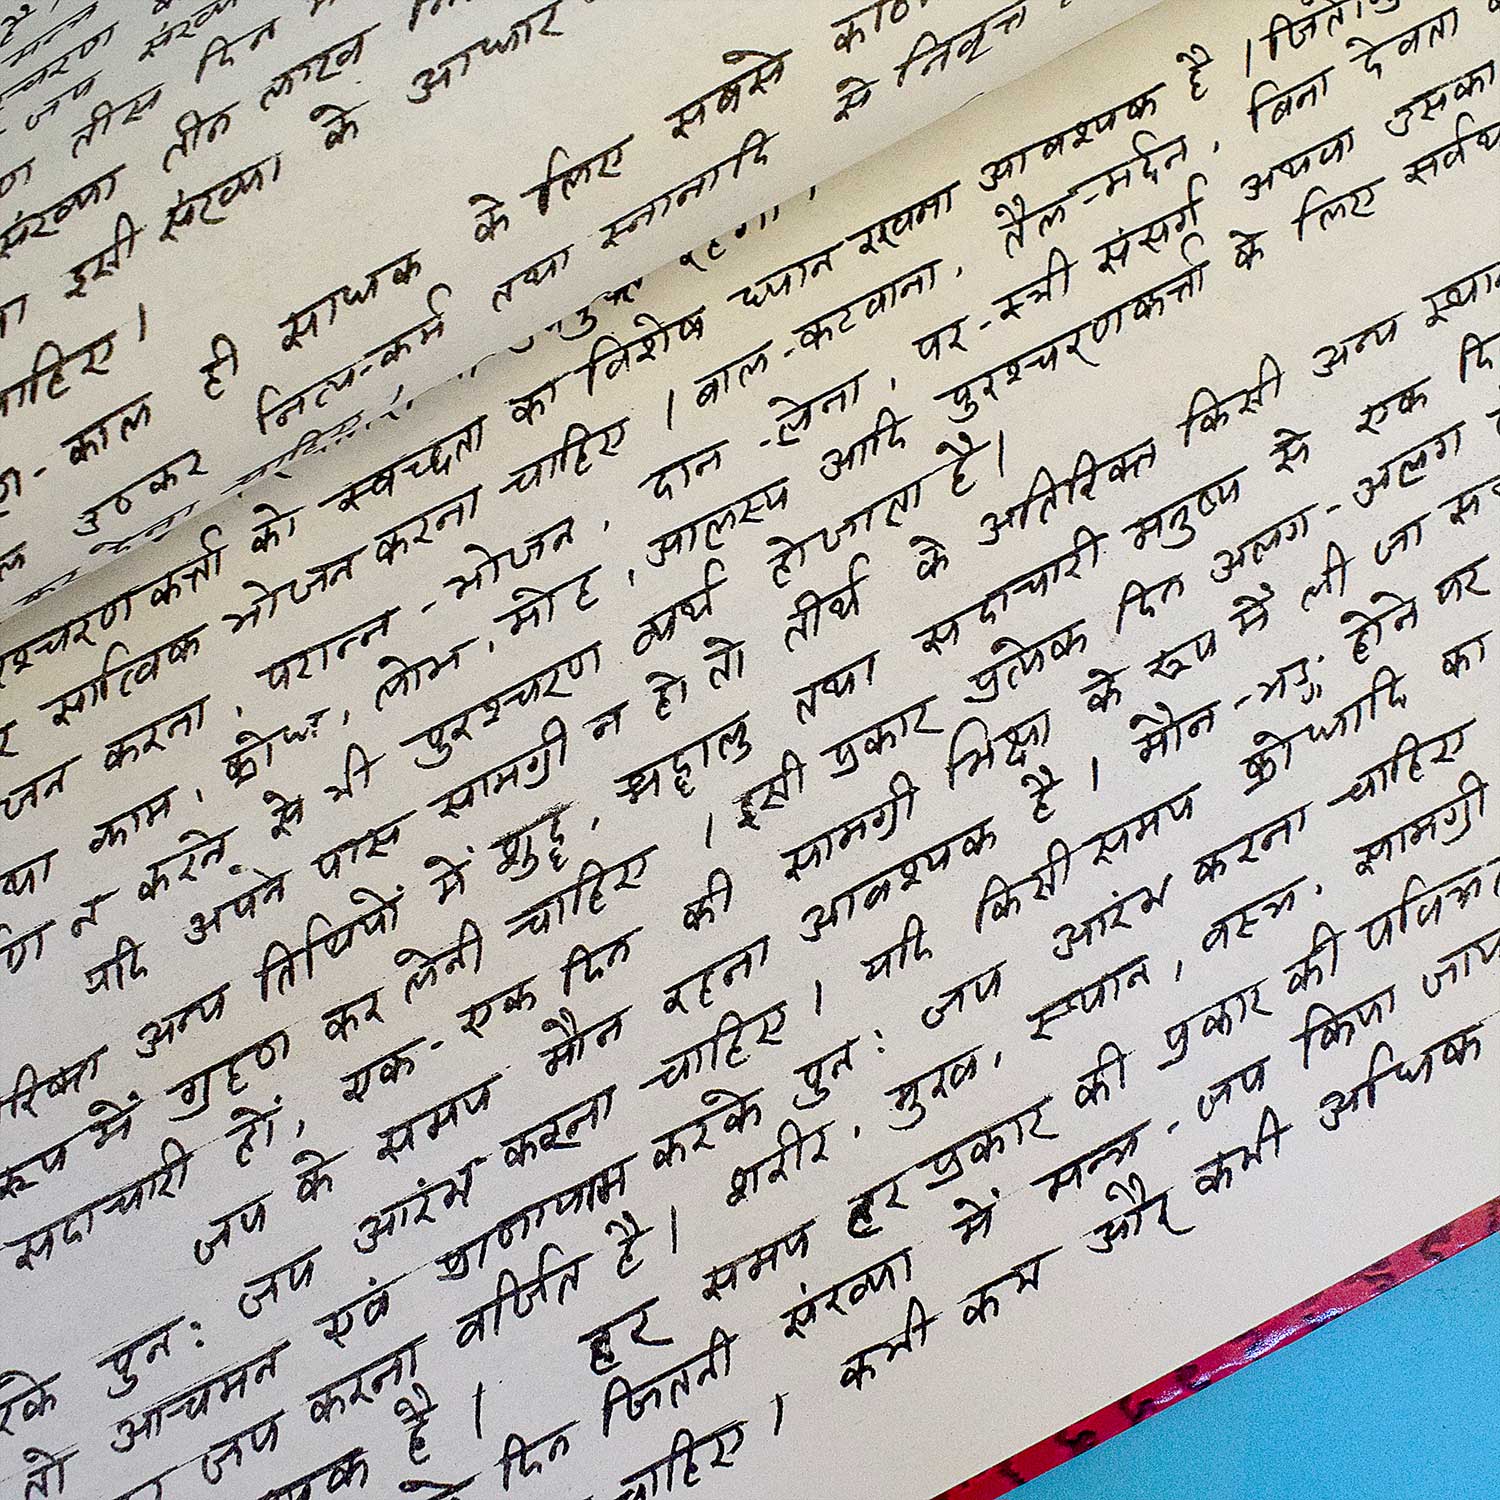 तीस दिन
संख्या तीन लाख
इसी संख्या के आधार
चाहिए।
काल ही साधक के लिए सबसे
उठकर नित्य-कर्म तथा स्नानादि से निवृत्त
पुरश्चरणकर्त्ता को स्वच्छता का विशेष ध्यान रखना आवश्यक है।
सात्विक भोजन करना चाहिए। बाल-कटवाना, तैल-मर्दन, बिना देवता
करना, परान्न-भोजन, दान-लेना, पर-स्त्री संसर्ग अथवा उसका
काम, क्रोध, लोभ, मोह, आलस्य आदि पुरश्चरणकर्त्ता के लिए सर्वथा
न करने से भी पुरश्चरण व्यर्थ होजाता है।
यदि अपने पास सामग्री न हो तो तीर्थ के अतिरिक्त किसी अन्य स्थान
अन्य तिथियों में शुद्ध, श्रद्धालु तथा सदाचारी मनुष्य से एक
रूप में ग्रहण कर लेनी चाहिए। इसी प्रकार प्रत्येक दिन अलग-अलग
सदाचारी हों, एक-एक दिन की सामग्री भिक्षा के रूप में ली जा
जप के समय मौन रहना आवश्यक है। मौन-भङ्ग होने पर
पुन: जप आरंभ करना चाहिए। यदि किसी समय क्रोधादि का
तो आचमन एवं प्राणायाम करके पुन: जप आरंभ करना चाहिए
जप करना वर्जित है। शरीर, मुख, स्थान, वस्त्र, सामग्री
है। हर समय हर प्रकार की प्रकार की पवित्रता
दिन जितनी संख्या में मन्त्र-जप किया जाय
चाहिए। कभी कम और कभी अधिक